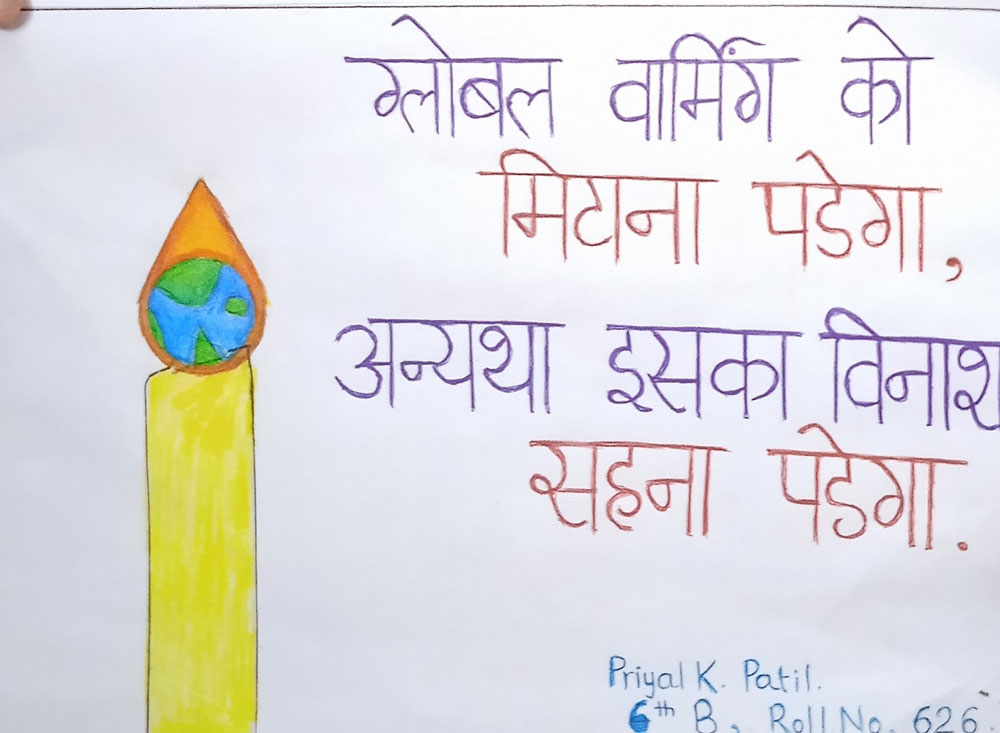 ग्लोबल वार्मिंग को
मिटाना पडेगा,
अन्यथा इसका विनाश
सहना पडेगा.
Priyal K. Patil.
6th B, Roll No. 626.